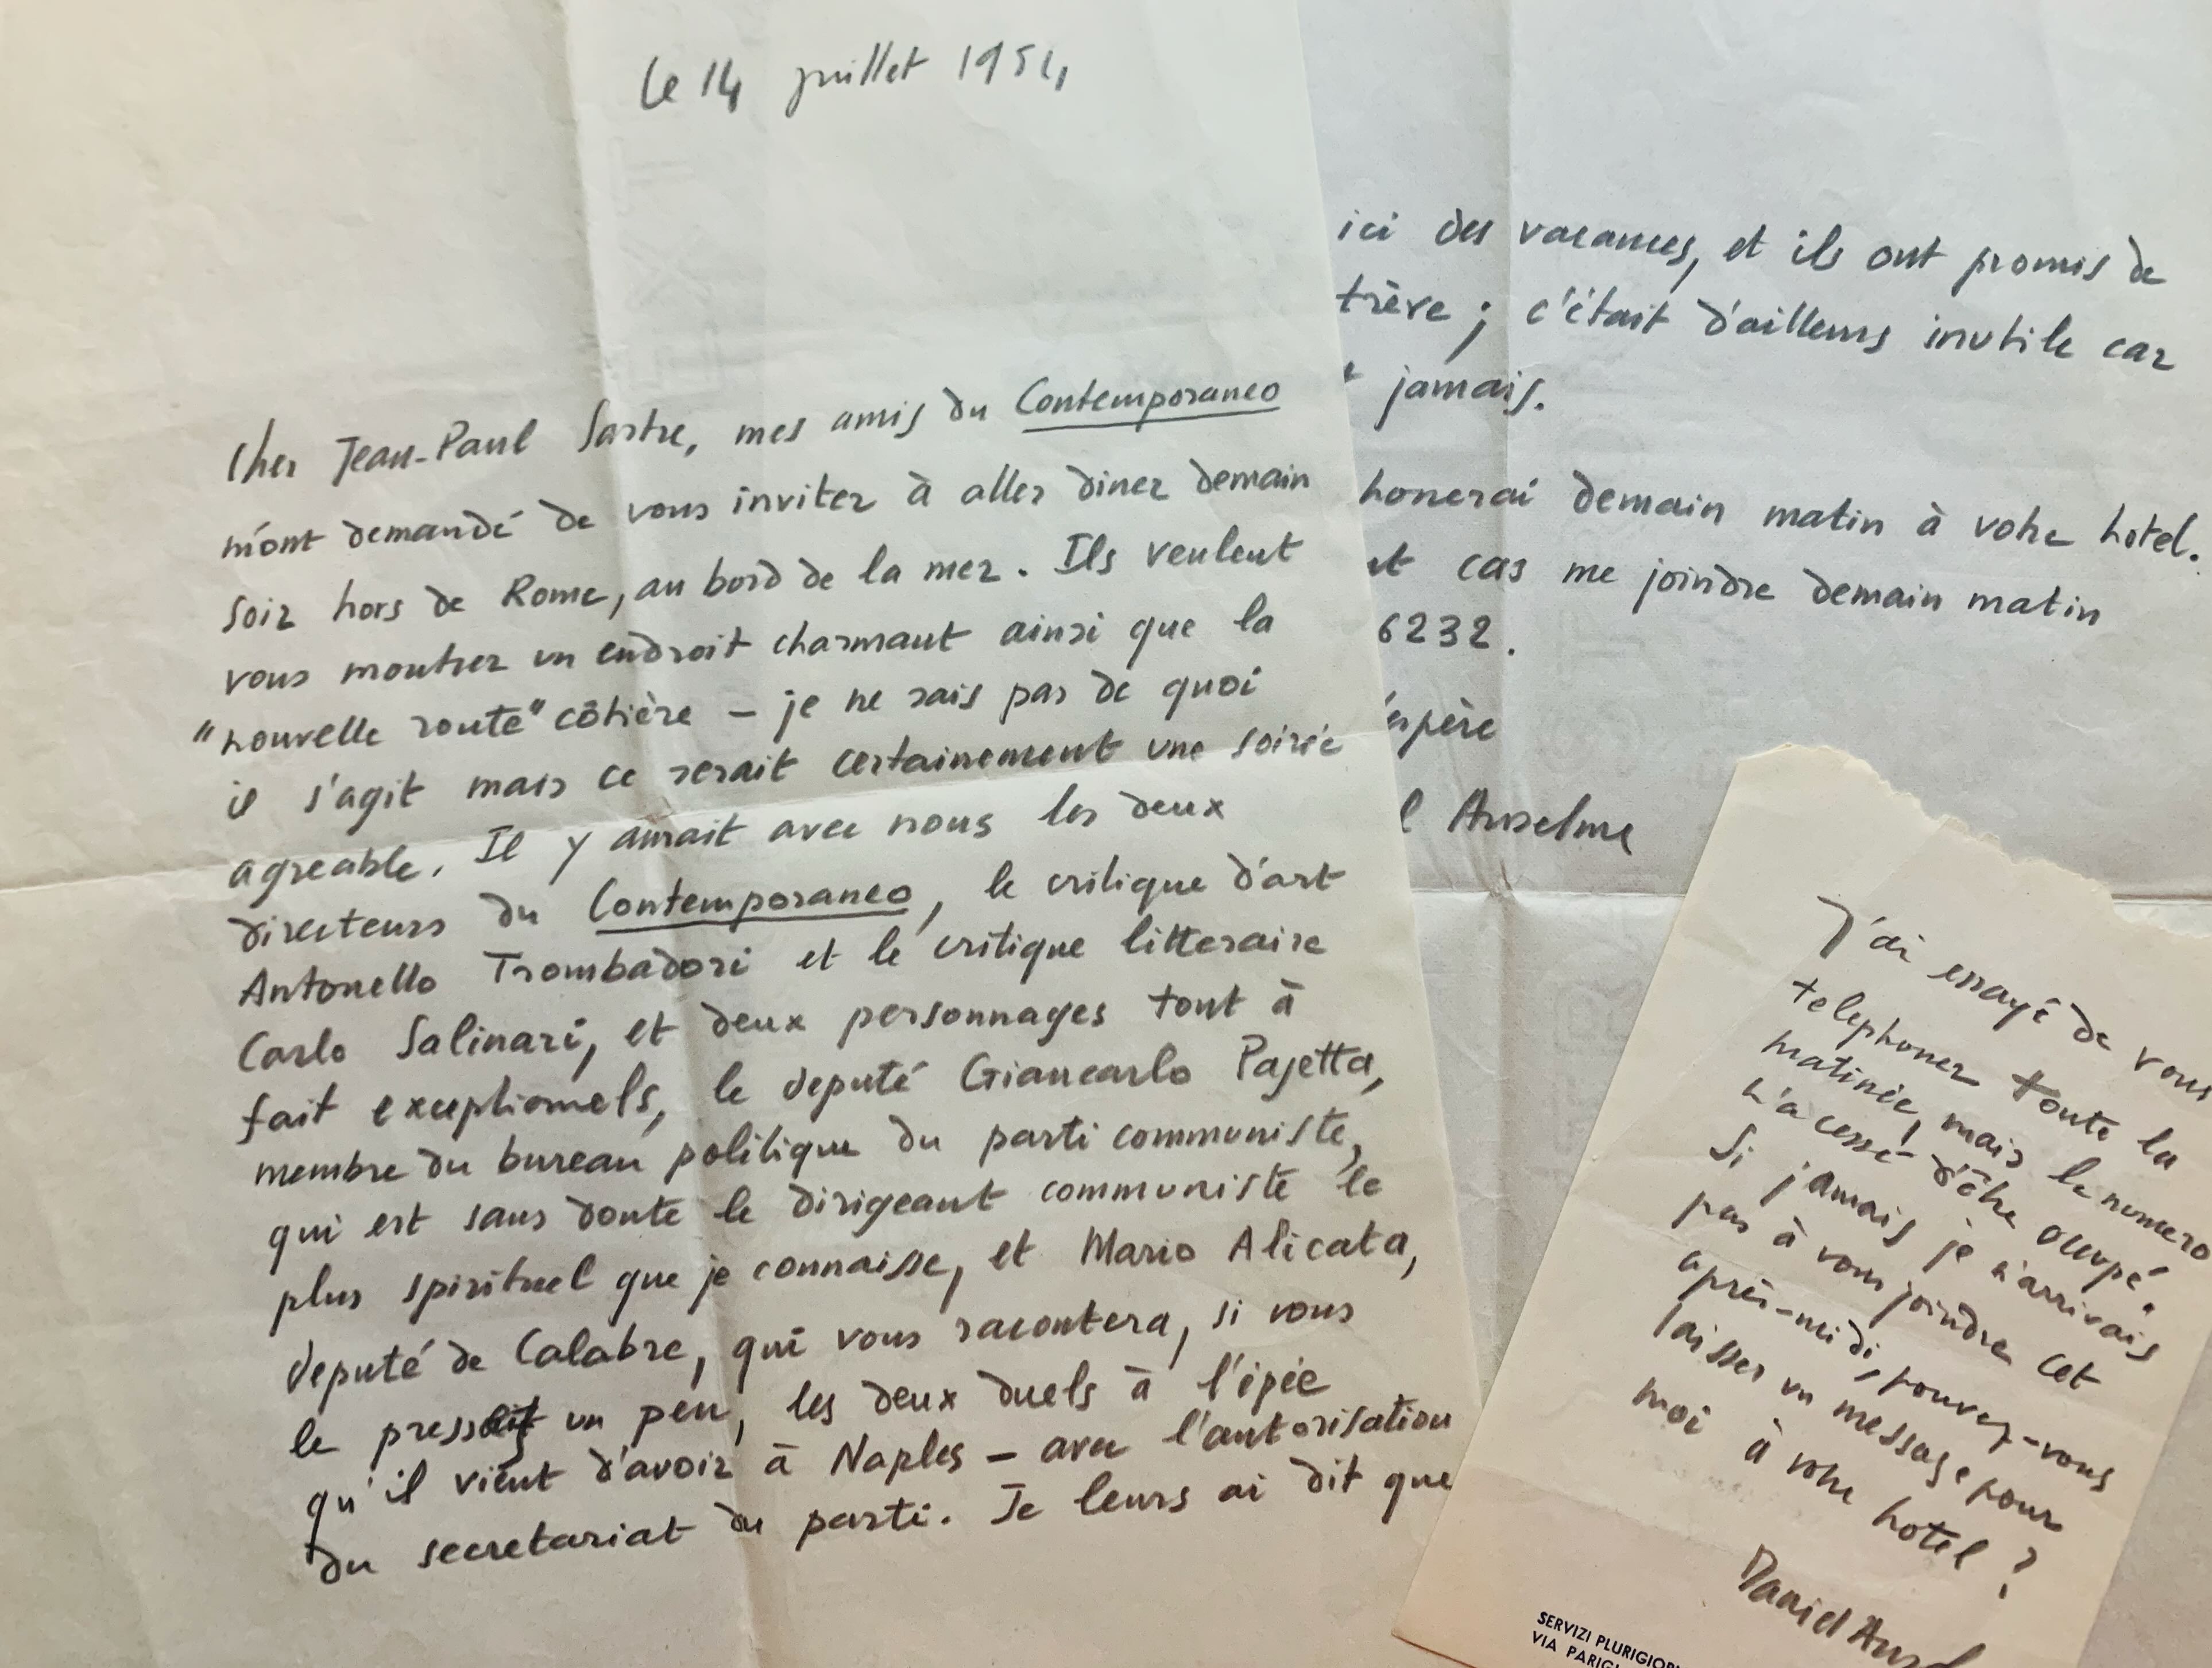 le 14 juillet 1954
Cher Jean-Paul Sartre, mes amis du Contemporaneo
m'ont demandé de vous inviter à aller diner demain
soir hors de Rome, au bord de la mer. Ils veulent
vous montrer un endroit charmant ainsi que la
"nouvelle route" côtière – je ne sais pas de quoi
il s'agit mais ce serait certainement une soirée
agreable. Il y aurait avec nous les deux
directeurs du Contemporaneo, le critique d'art
Antonello Trombadori et le critique litteraire
Carlo Salinari, et deux personnages tout à
fait exceptionnels, le deputé Giancarlo Pajetta,
membre du bureau politique du parti communiste,
qui est sans doute le dirigeant communiste le
plus spirituel que je connaisse, et Mario Alicata,
deputé de Calabre, qui vous racontera, si vous
le un peu, les deux duels à l'épée
qu'il vient d'avoir à Naples – avec l'autorisation
du secretariat du parti. Je leurs ai dit que
ici des vacances, et ils ont promis de
trève ; c'était d'ailleurs inutile car
jamais.
honerai demain matin à votre hotel.
cas me joindre demain matin
6232.
espère
l Anselme
J'ai essayé de vous
telephoner toute la
matinée, mais le numero
n'a cessé d'être occupé.
Si jamais je n'arrivais
pas à vous joindre cet
après-midi, pouvez-vous
laisser un message pour
moi à votre hotel ?
Daniel Ansel
SERVIZI PLURIGIOR
VIA PARIG